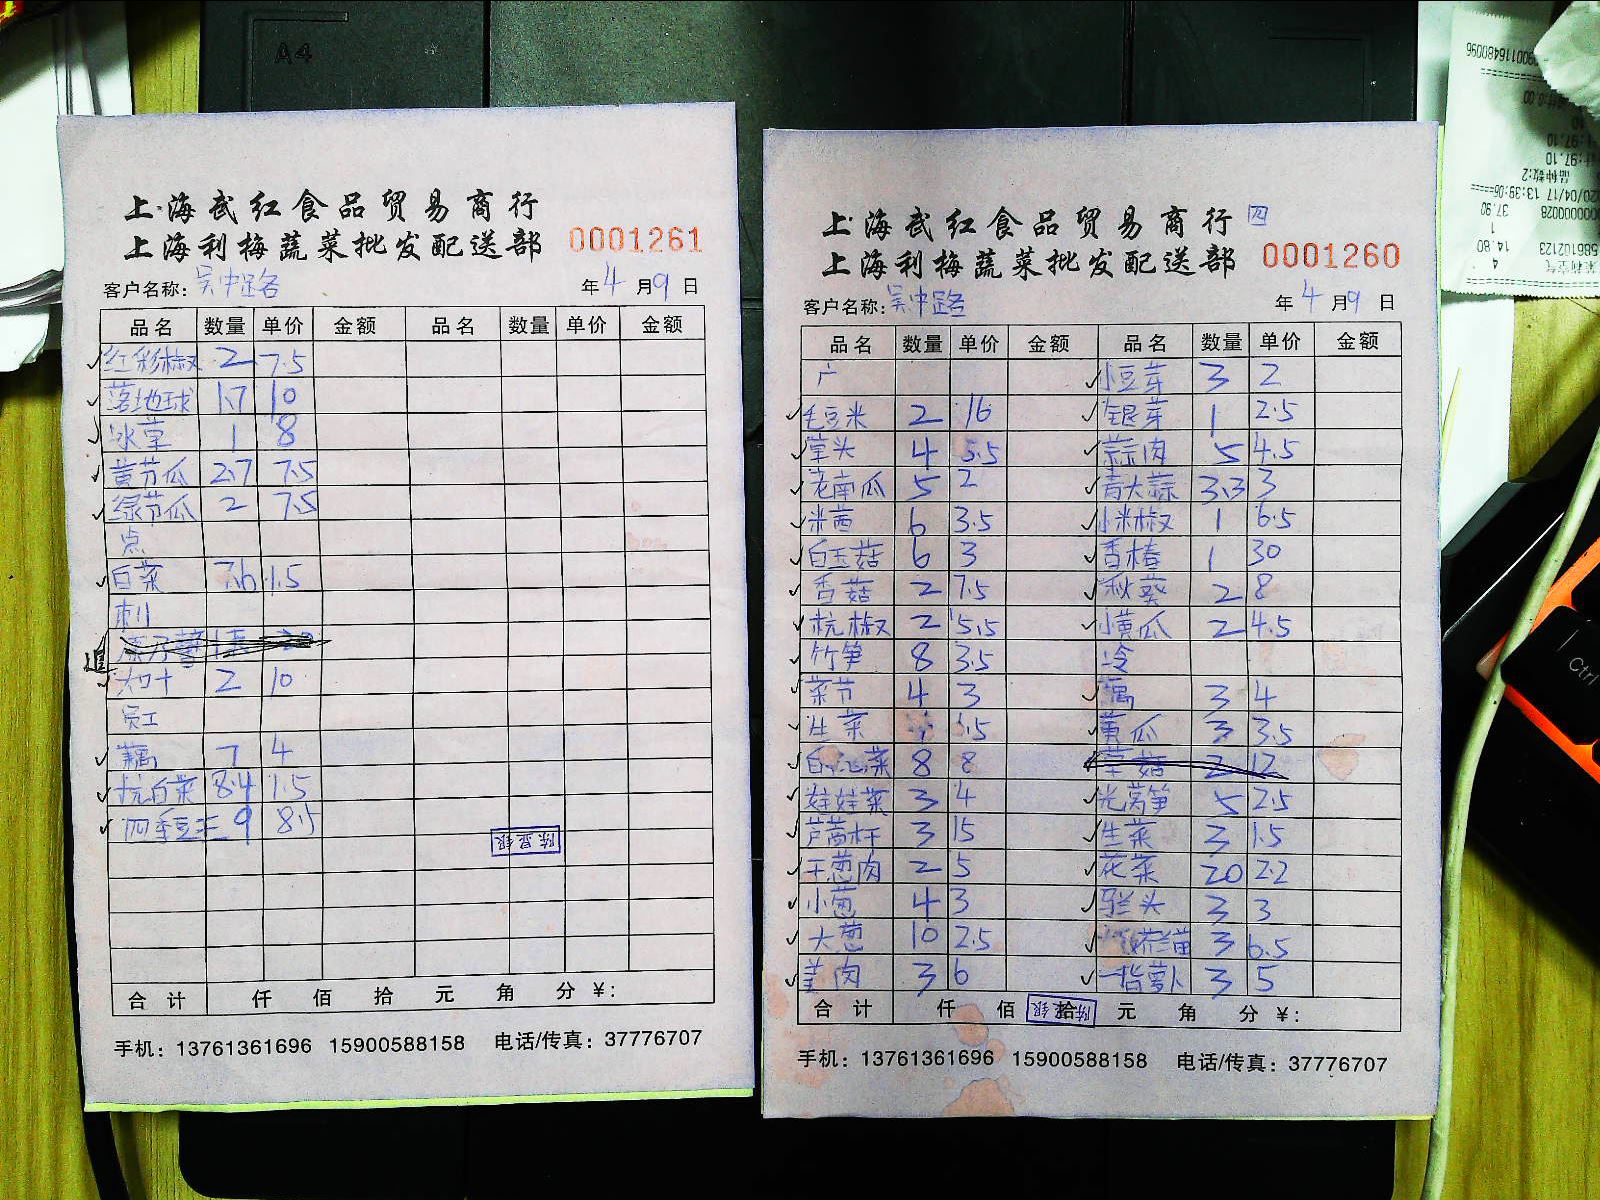 A4
上海武红食品贸易商行
上海利梅蔬菜批发配送部 0001261
客户名称: 吴中路 年 4 月 9 日
品名 数量 单价 金额 品名 数量 单价 金额
红彩椒 2 7.5
落地球 1.7 10
冰草 1 8
黄节瓜 2.7 7.5
绿节瓜 2 7.5
点
白菜 7.6 1.5
刺
2 10
员工
藕 7 4
杭白菜 8.4 1.5
四季豆 9 8.5
陈显银
合计 仟 佰 拾 元 角 分 ¥:
手机: 13761361696 15900588158 电话/传真: 37776707
上海武红食品贸易商行 四
上海利梅蔬菜批发配送部 0001260
客户名称: 吴中路 年 4 月 9 日
品名 数量 单价 金额 品名 数量 单价 金额
广 小豆芽 3 2
毛豆米 2 16 银芽 1 2.5
草头 4 5.5 蒜肉 5 4.5
老南瓜 5 2 青大蒜 3.3 3
米茜 6 3.5 小米椒 1 6.5
白玉菇 6 3 香椿 1 30
香菇 2 7.5 秋葵 2 8
杭椒 2 5.5 小黄瓜 2 4.5
竹笋 8 3.5 冷
菜节 4 3 藕 3 4
生菜 1.5 黄瓜 3 3.5
8 8 草菇 2 12
娃娃菜 3 4 光莴笋 5 2.5
芦蒿杆 3 15 生菜 3 1.5
干葱肉 2 5 花菜 20 2.2
小葱 4 3 马兰头 3 3
大葱 10 2.5 3 6.5
姜肉 3 6 一指萝卜 3 5
合计 仟 佰 拾 元 角 分 ¥:
陈显银
手机: 13761361696 15900588158 电话/传真: 37776707
Ctrl